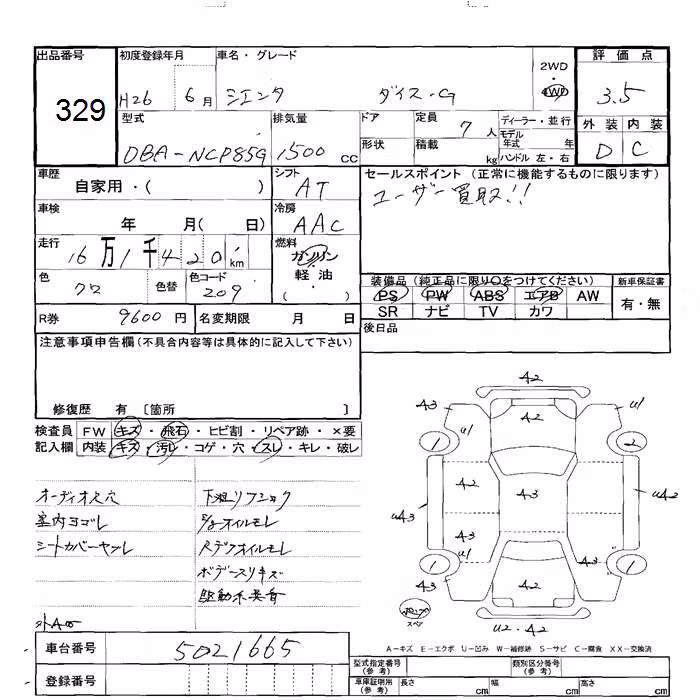 出品番号 初度登録年月 車名・グレード 2WD 評価点
329 H26 6月 シエンタ ダイス-G 4WD 3.5
型式 排気量 ドア 定員 7人 ディーラー・並行 外装 内装
モデル年式 年
DBA-NCP85G 1500cc 形状 積載 kg ハンドル 左・右 D C
車歴 シフト セールスポイント (正常に機能するものに限ります)
自家用・( ) AT ユーザー買取!!
車検 冷房
年 月( 日) AAC
走行 燃料
16万1千420km ガソリン
軽油
色 色替 色コード ( ) 装備品 (純正品に限り○をつけてください) 新車保証書
クロ 209 PS PW ABS エアB AW 有・無
SR ナビ TV カワ
R券 9600円 名変期限 月 日 後日品
注意事項申告欄(不具合内容等は具体的に記入して下さい)
修復歴 有 [箇所 ]
検査員 FW キズ・飛石・ヒビ割・リペア跡・×要
記入欄 内装 キズ・汚レ・コゲ・穴・スレ・キレ・破レ
オーディオス穴 下廻リフショク
室内ヨゴレ オイルモレ
シートカバーヤブレ Rデフオイルモレ
ボデースリキズ
駆動系異音
A2
A3 A2 U1
1 U1 2
A2
UA3 A3 UA2
A3
U1 A3
1 1
A3 A2 A3
スペア U2・A2
A-キズ E-エクボ U-凹み W-補修跡 S-サビ C-腐食 XX-交換済
車台番号 5021665
型式指定番号(参考) 類別区分番号(参考)
登録番号 車庫証明用(参考) 長さ cm 幅 cm 高さ cm